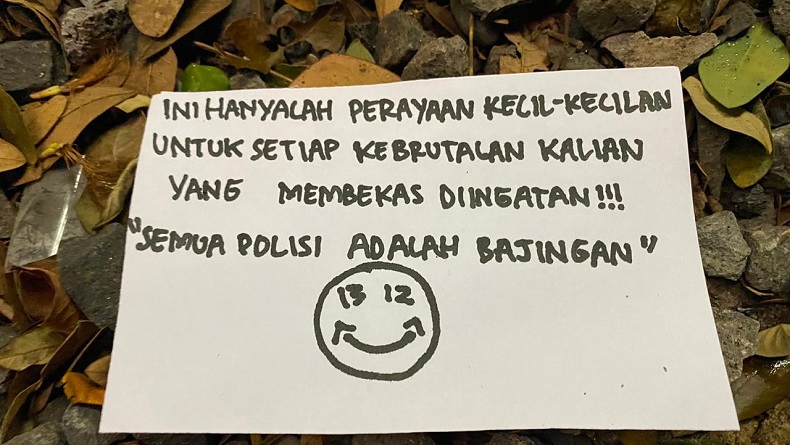 INI HANYALAH PERAYAAN KECIL-KECILAN
UNTUK SETIAP KEBRUTALAN KALIAN
YANG MEMBEKAS DIINGATAN!!!
"SEMUA POLISI ADALAH BAJINGAN"
13 12